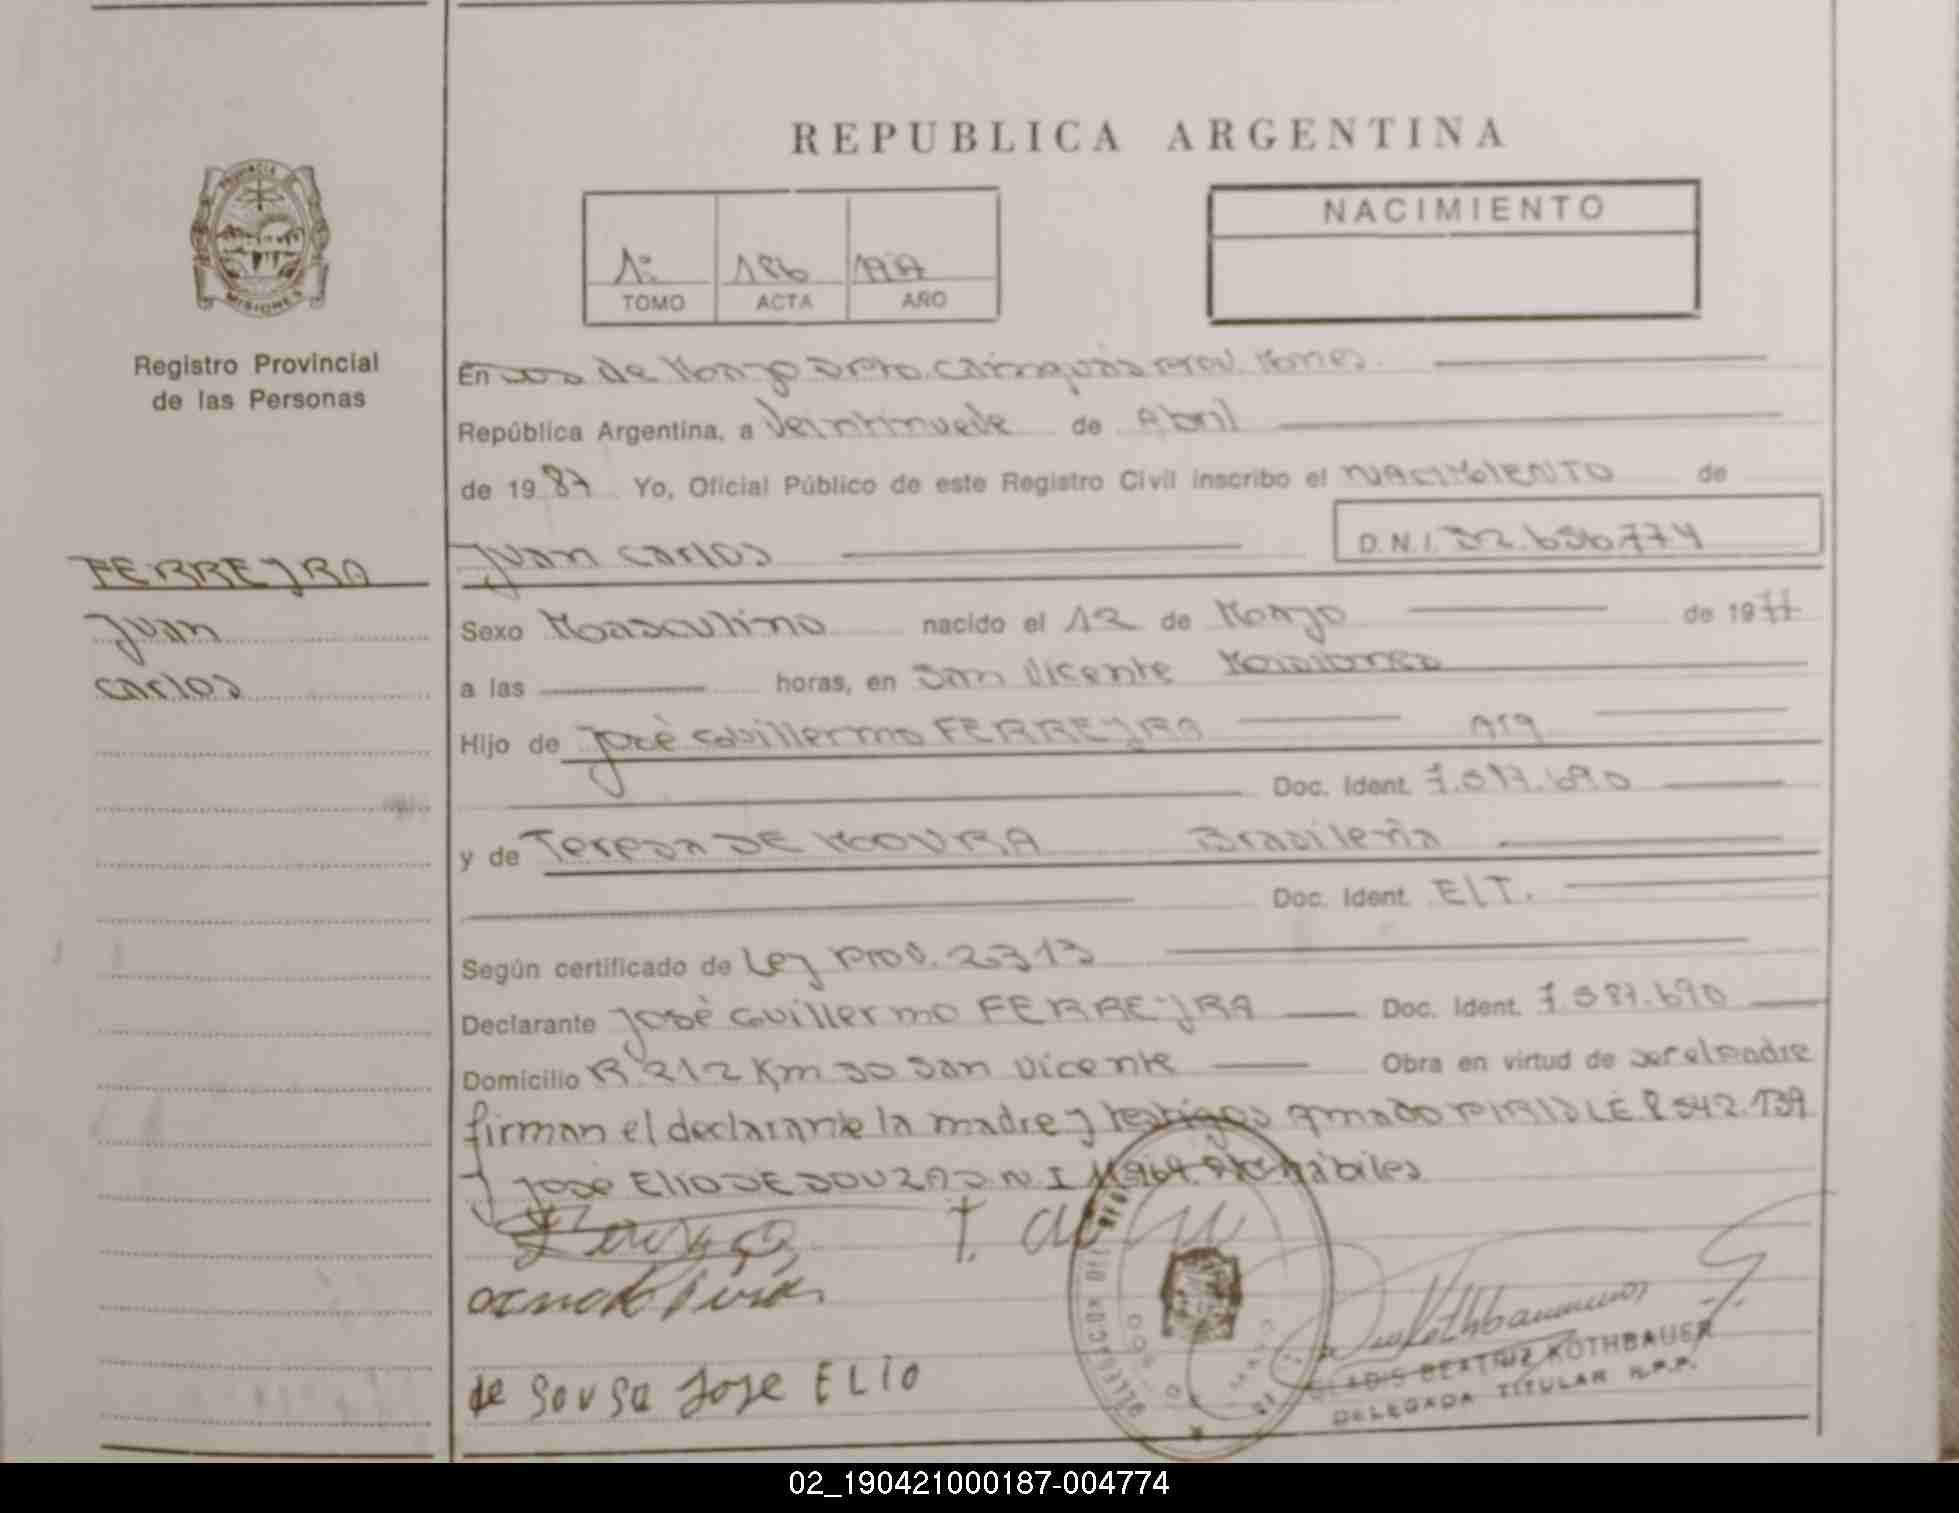 REPUBLICA ARGENTINA
PROVINCIA
MISIONES
Registro Provincial
de las Personas
NACIMIENTO
1º 186
TOMO ACTA AÑO
En Dos de Mayo Dpto. Cainguás Prov. Mnes.
República Argentina, a Veintinueve de Abril
de 1987 Yo, Oficial Público de este Registro Civil inscribo el NACIMIENTO de
FERREYRA
Juan Carlos
D.N.I. 32.656.774
Juan
Carlos
Sexo Masculino nacido el 12 de Marzo de 1977
a las horas, en San Vicente Misiones
Hijo de José Guillermo FERREYRA Arg
Doc. Ident. 7.587.690
y de Teresa DE MOURA Brasileña
Doc. Ident. E/T.
Según certificado de Ley Prov. 2313
Declarante José Guillermo FERREYRA Doc. Ident. 7.587.690
Domicilio R. 212 Km 30 San Vicente Obra en virtud de ser el padre
firman el declarante la madre y testigos Amado PIRIS L.E 8.542.139
y José Elio DE SOUZA D.N.I hábiles
de Sousa Jose ELIO
GLADIS BEATRIZ ROTHBAUER
DELEGADA TITULAR R.P.P.
02_190421000187-004774